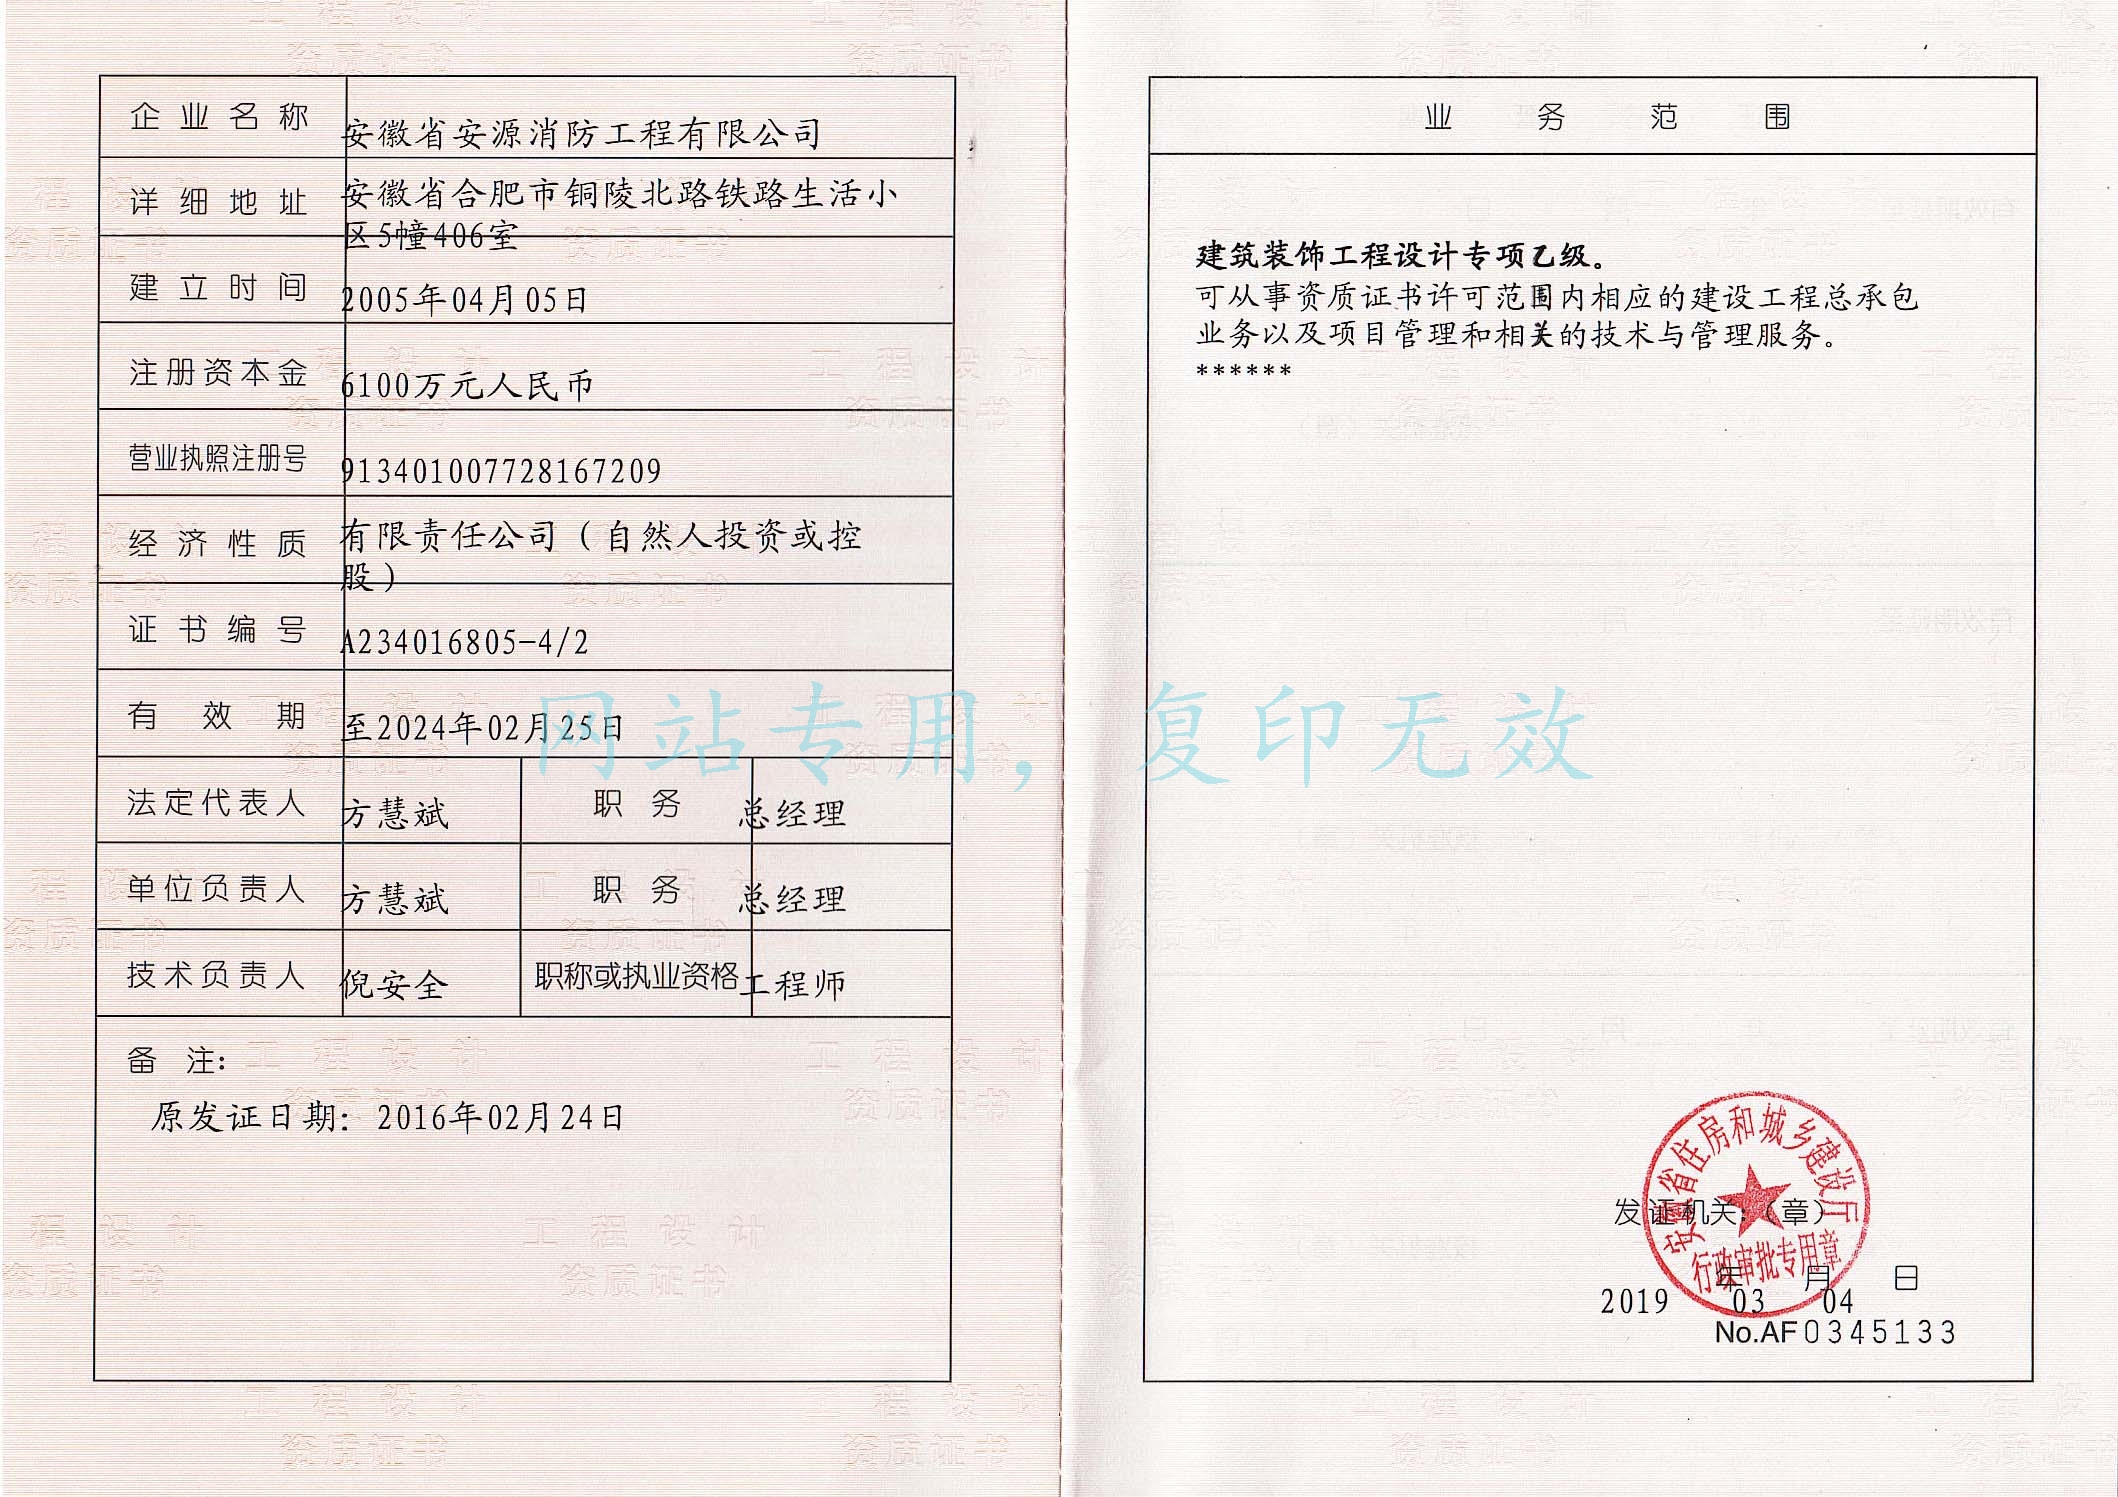 企业名称 安徽省安源消防工程有限公司
详细地址 安徽省合肥市铜陵北路铁路生活小
区5幢406室
建立时间 2005年04月05日
注册资本金 6100万元人民币
营业执照注册号 913401007728167209
经济性质 有限责任公司（自然人投资或控
股）
证书编号 A234016805-4/2
有效期 至2024年02月25日
法定代表人 方慧斌 职务 总经理
单位负责人 方慧斌 职务 总经理
技术负责人 倪安全 职称或执业资格 工程师
备注:
原发证日期: 2016年02月24日
业务范围
建筑装饰工程设计专项乙级。
可从事资质证书许可范围内相应的建设工程总承包
业务以及项目管理和相关的技术与管理服务。
******
安徽省住房和城乡建设厅
发证机关:（章）
行政审批专用章
年 月 日
2019 03 04
No.AF0345133
网站专用，复印无效
工程设计
资质证书